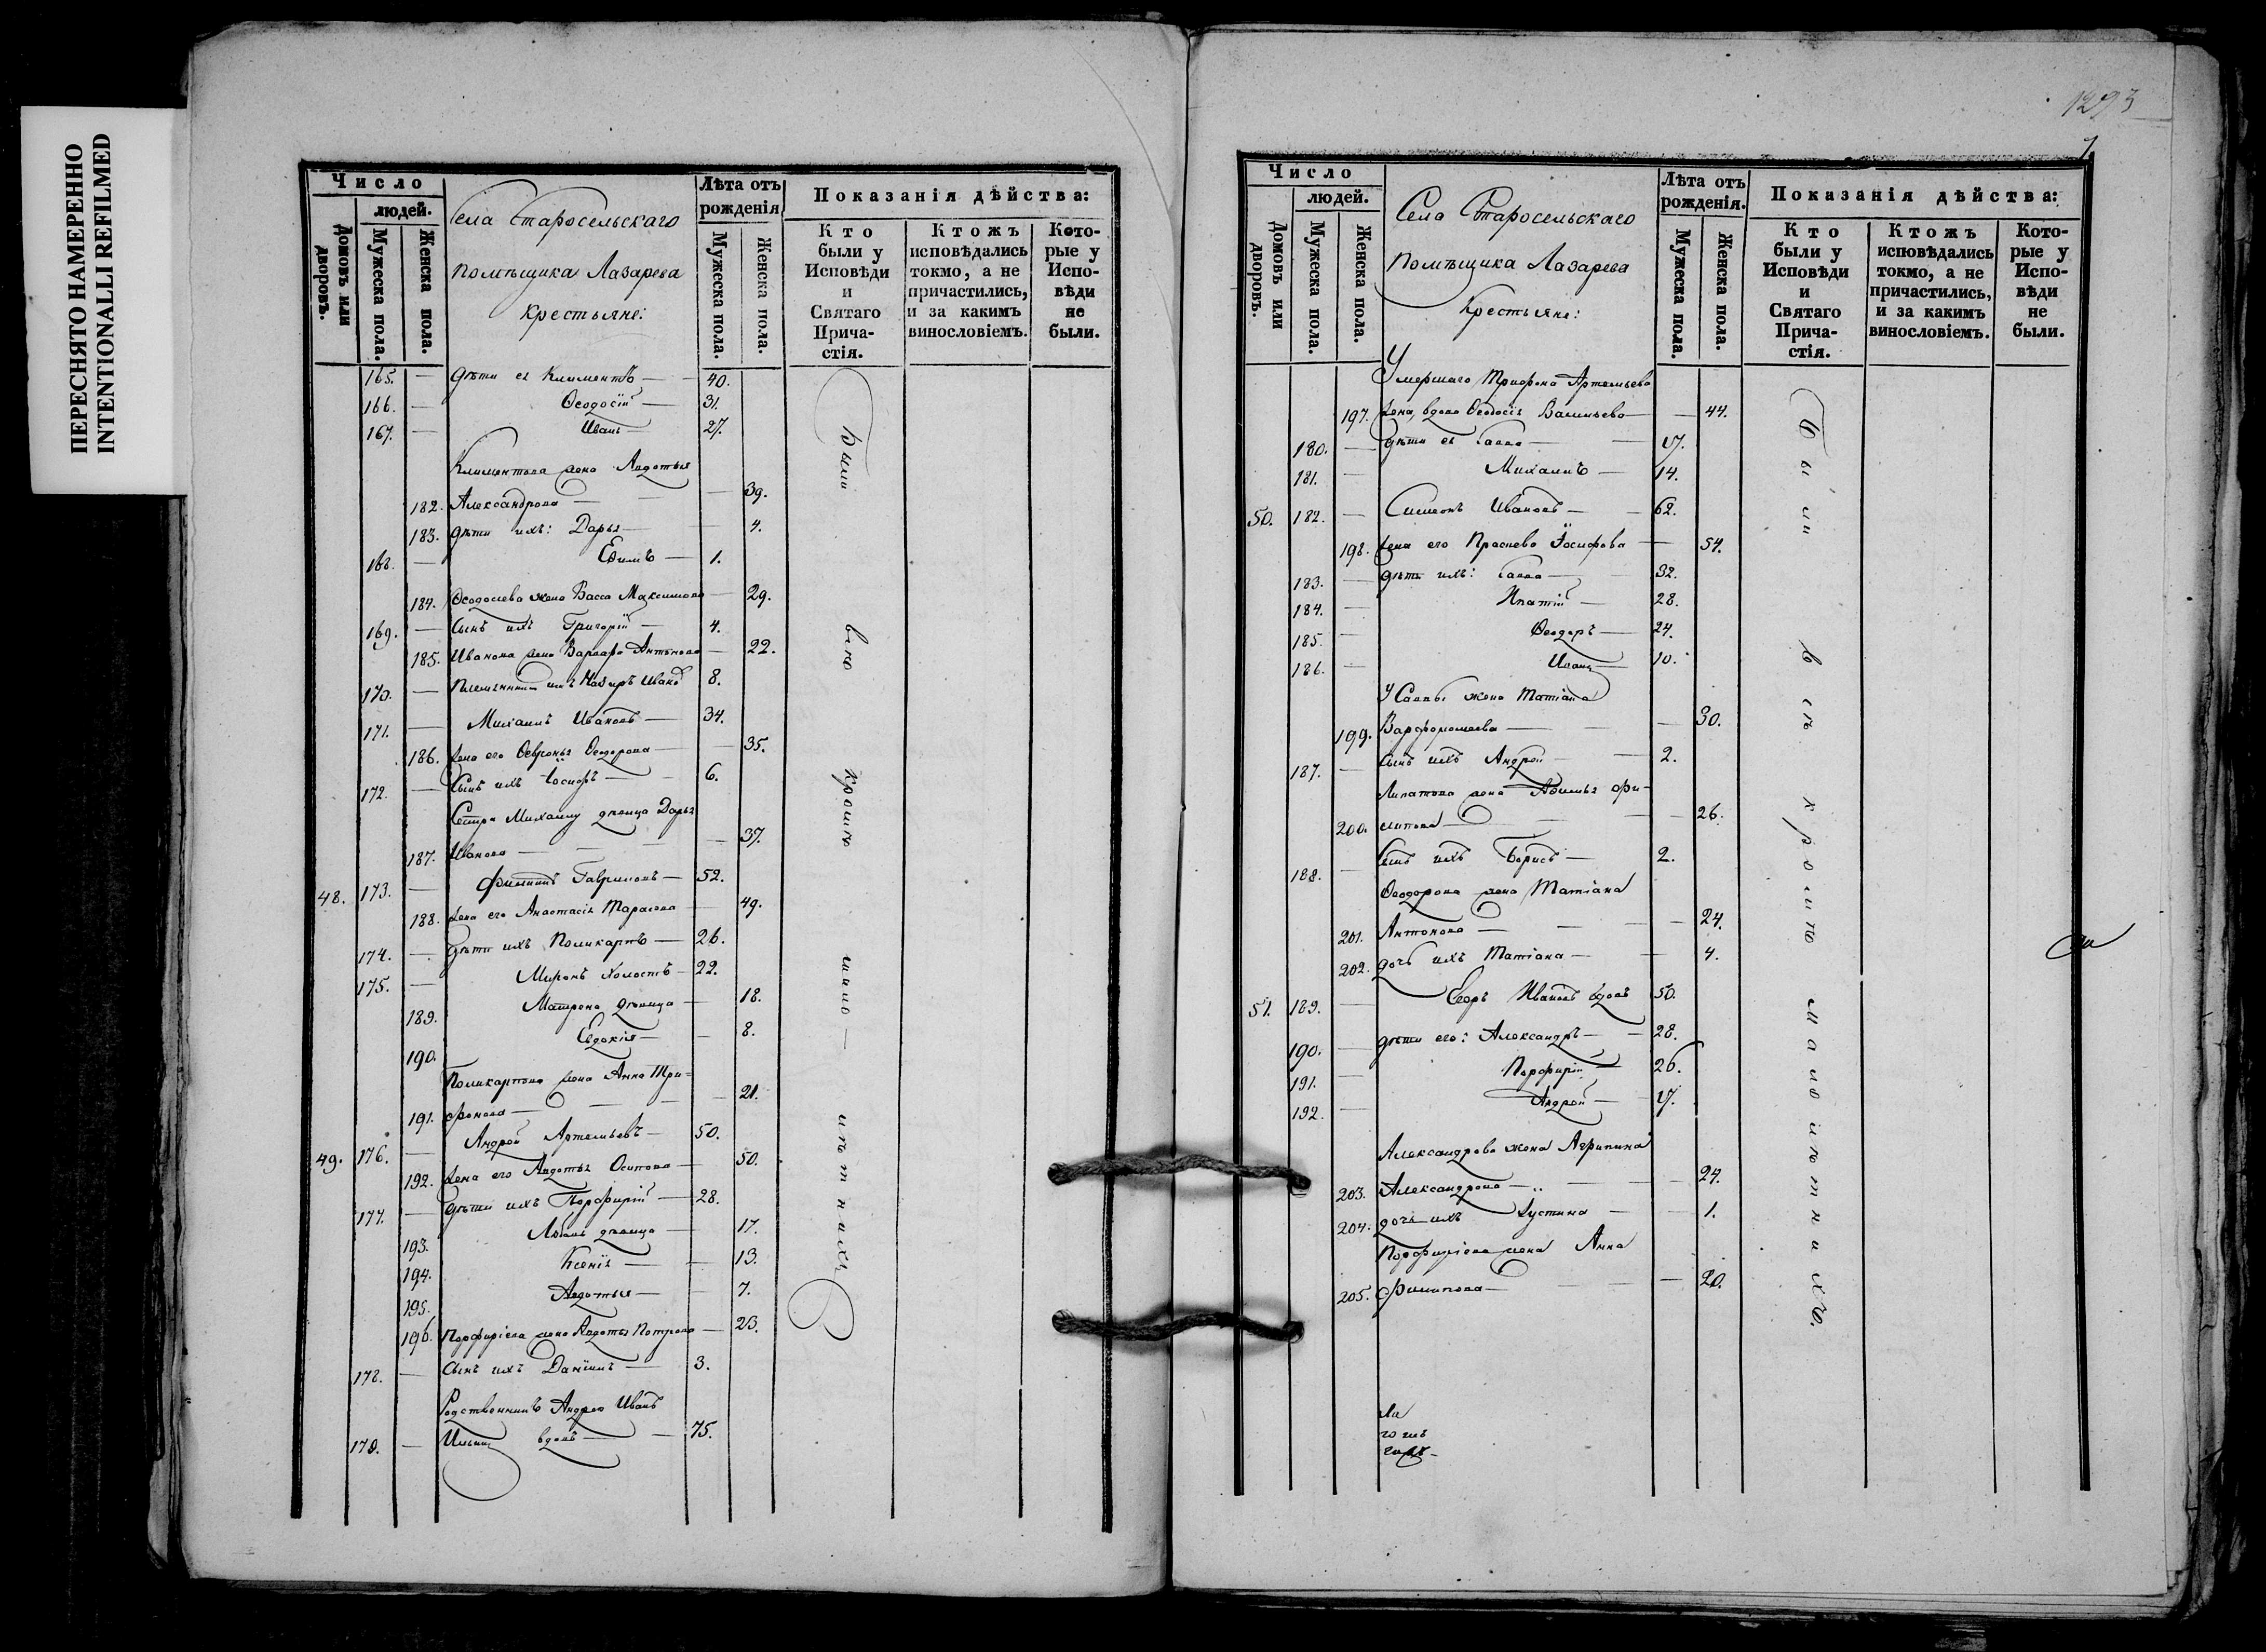 ПЕРЕСНЯТО НАМЕРЕННО
INTENTIONALLI REFILMED
Число
Лѣта отъ рожденія
Показанія дѣйства:
людей.
Домовъ или дворовъ.
Мужеска пола.
Женска пола.
Села Старосельскаго
помѣщика Лазарева
Крестьяне:
Мужеска пола.
Женска пола.
Кто были у Исповѣди и Святаго Прича-стія.
Ктожъ исповѣдались токмо, а не причастились, и за какимъ винословіемъ.
Кото-рые у Испо-вѣди не были.
165. — дѣти ея Климентъ — 40.
166. — Ѳеодосій — 31.
167. — Иванъ — 27.
Климентова жена Авдотья
182. Александрова — 39.
183. дѣти ихъ: Дарья — 4.
168. — Ефимъ — 1.
184. Ѳеодосіева жена Васса Максимова — 29.
169. — Сынъ ихъ Григорій — 4.
185. Иванова жена Варвара Антонова — 22.
170. — Племянникъ ихъ Иванъ 8.
171. — Михаилъ Ивановъ — 34.
186. Жена его Ѳевронья Ѳеодорова — 35.
172. — Сынъ ихъ Іосифъ — 6.
Сестра Михаилу дѣвица Дарья
187. Иванова — 37.
48. 173. — Филиппъ Гавриловъ — 52.
188. Жена его Анастасія Тарасова 49.
174. — дѣти ихъ Поликарпъ — 26.
175. — Миронъ холостъ — 22.
189. Матрона дѣвица — 18.
190. Евдокія — 8.
Поликарпова жена Анна Три-
191. фонова — 21.
49. 176. — Андрей Артемьевъ — 50.
192. Жена его Авдотья Осипова — 50.
177. — Дѣти ихъ Порфирій — 28.
193. дѣвица — 17.
194. Ксенія — 13.
195. Авдотья — 7.
196. Порфиріева жена Авдотья Петрова — 23.
178. — Сынъ ихъ Даніилъ — 3.
Родственникъ Андрею Иванъ
179. — Ильинъ вдовъ — 75.
Были всѣ кромѣ мало — лѣтнихъ
1293
Число
Лѣта отъ рожденія.
Показанія дѣйства:
людей.
Домовъ или дворовъ.
Мужеска пола.
Женска пола.
Села Старосельскаго
Помѣщика Лазарева
Крестьяне:
Мужеска пола.
Женска пола.
Кто были у Исповѣди и Святаго Прича-стія.
Ктожъ исповѣдались токмо, а не причастились, и за какимъ винословіемъ.
Кото-рые у Испо-вѣди не были.
Умершаго Трифона Артемьева
197. Жена, вдова Ѳеодосія Васильева — 44.
180. — дѣти ея Савва — 17.
181. — Михаилъ — 14.
50. 182. — Симеонъ Ивановъ — 62.
198. Жена его Праскева Іосифова — 54.
183. — дѣти ихъ: Савва — 32.
184. — Ипатій — 28.
185. — Ѳеодоръ — 24.
186. — Иванъ — 10.
У Саввы жена Татіана
199. Варфоломеева — 30.
187. — Сынъ ихъ Андрей — 2.
Ипатова жена Афимья Фи-
200. липова — 26.
188. — Сынъ ихъ Борисъ — 2.
Ѳеодорова жена Татіана
201. Антонова — 24.
202. дочь ихъ Татіана — 4.
51. 189. — Егоръ Ивановъ вдовъ 50.
190. — дѣти его: Александръ — 28.
191. — Порфирій — 26.
192. — Андрей — 17.
Александрова жена Агрипина
203. Александрова — 24.
204. дочь ихъ Іустина — 1.
Порфиріева жена Анна
205. Филипова — 20.
Были всѣ кромѣ малолѣтнихъ.